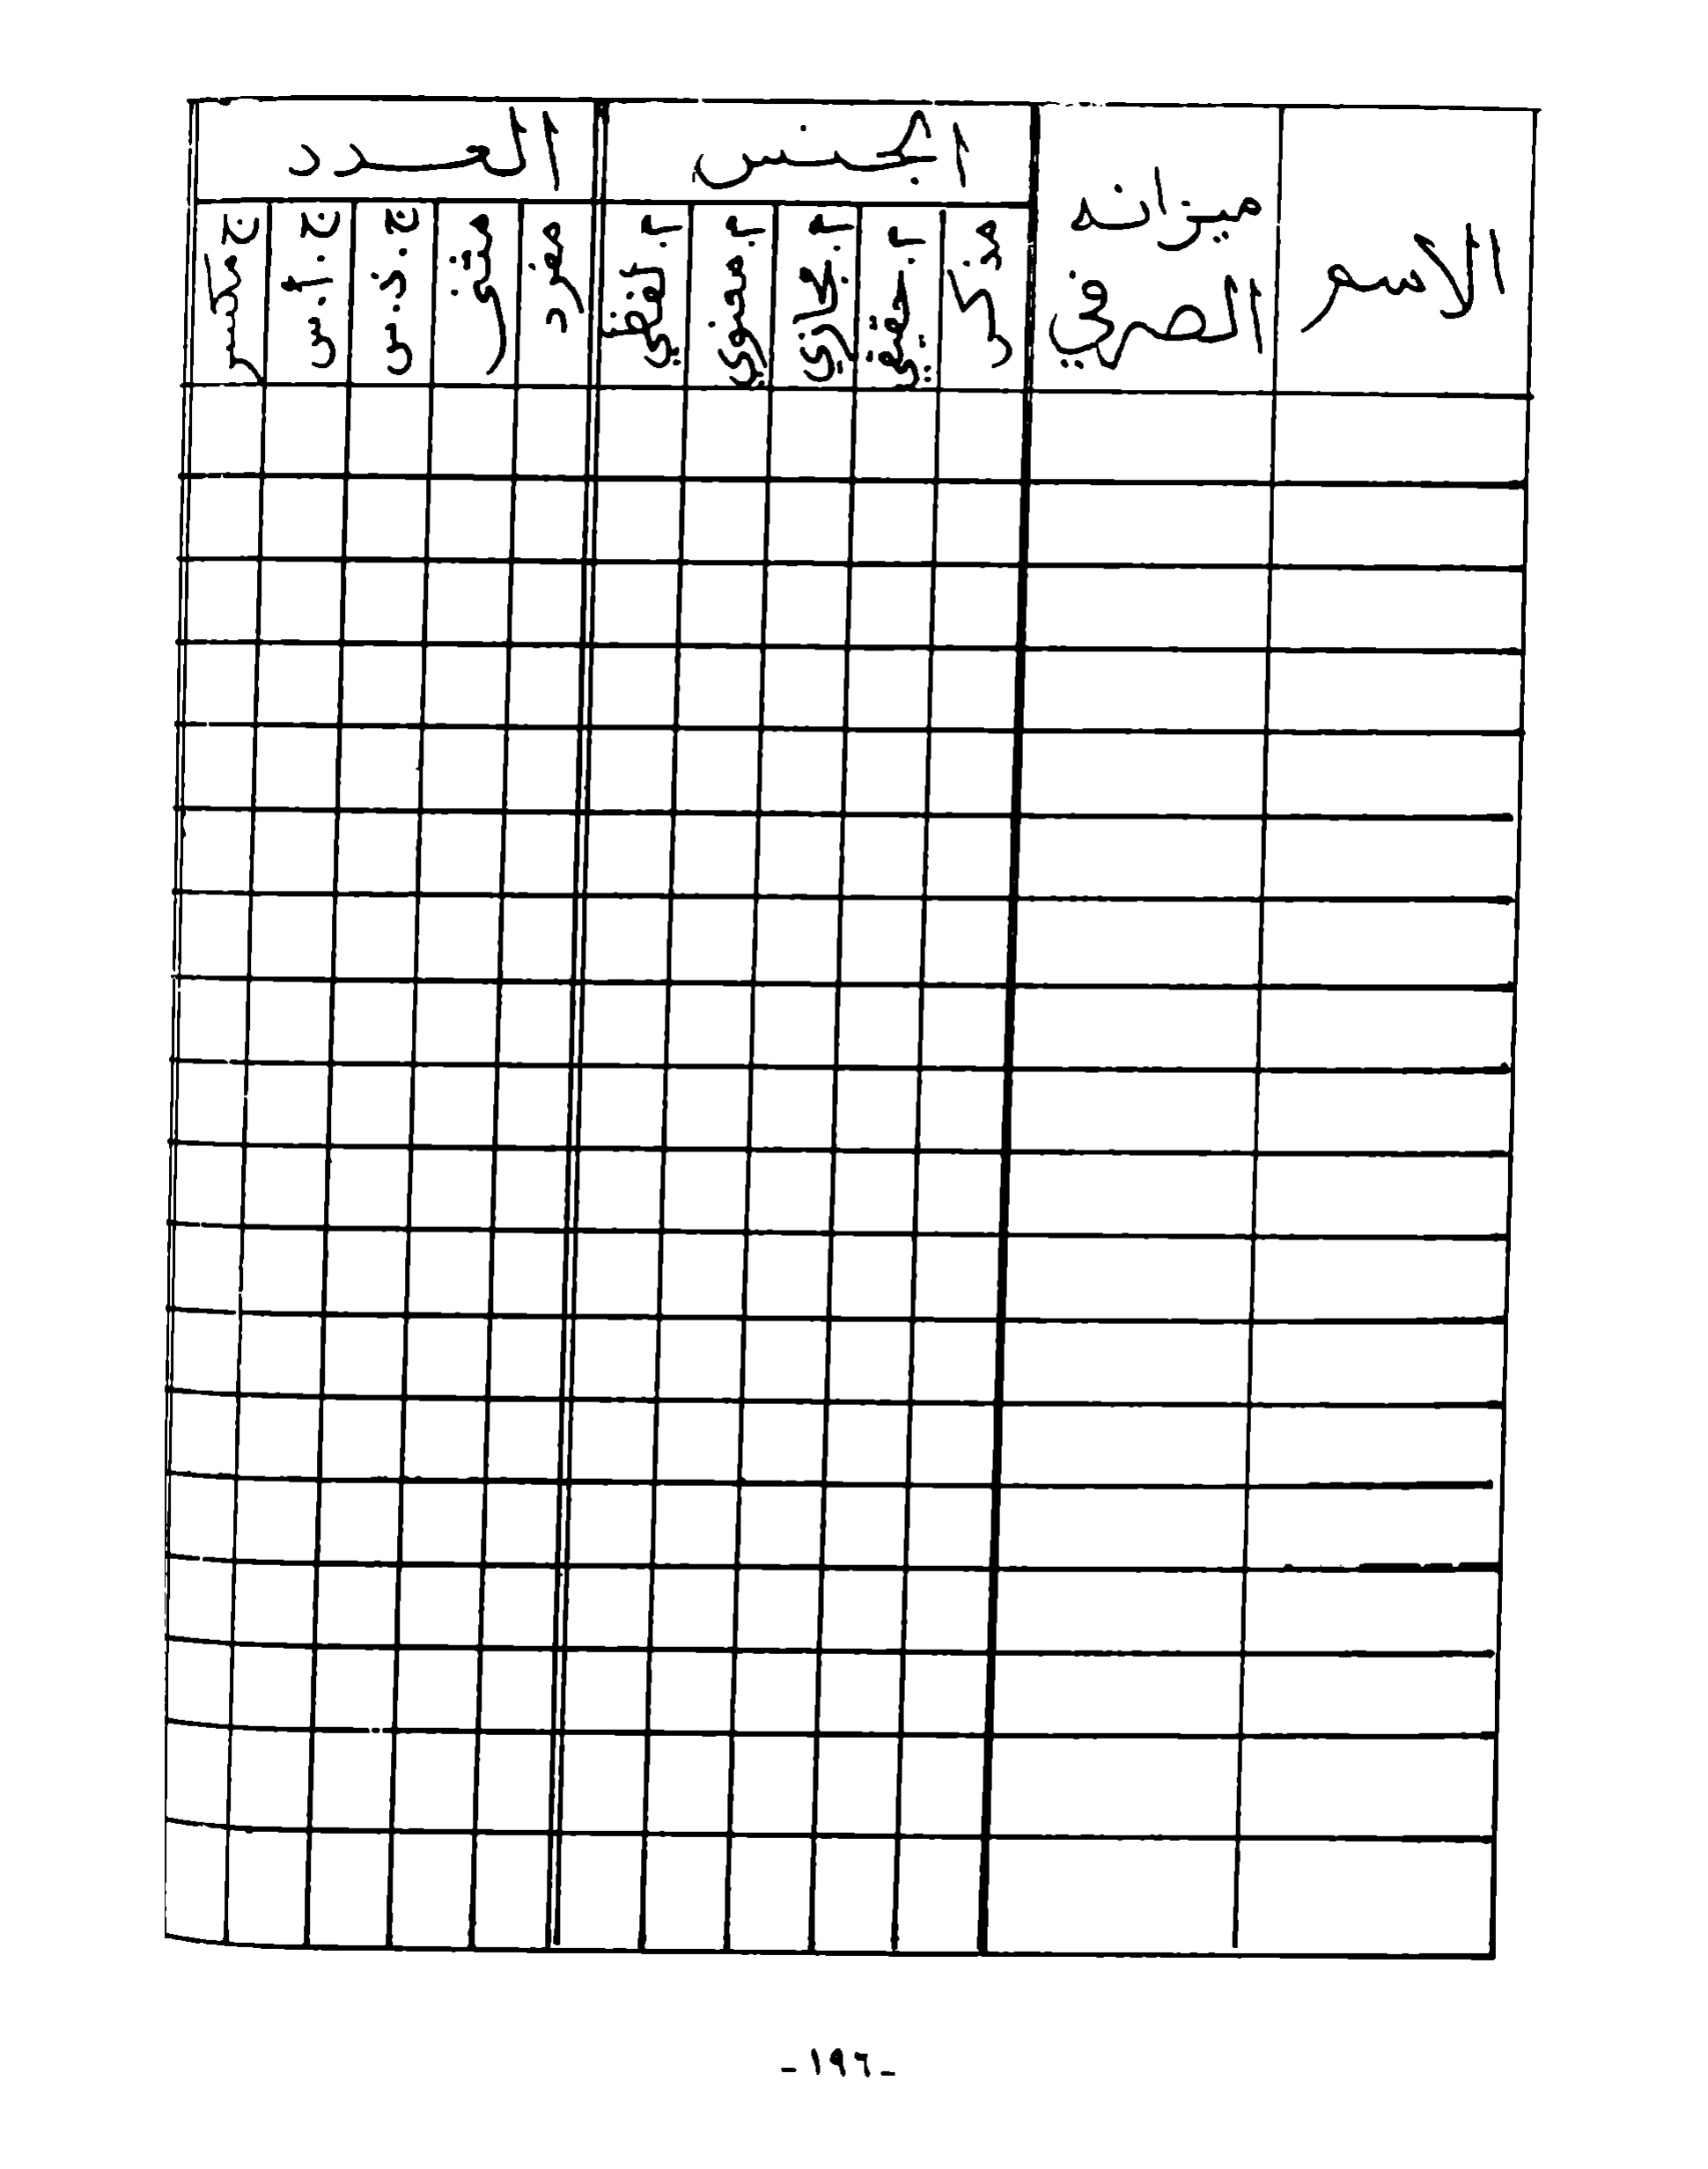 الاسم
ميزانه
الصرفي
الجنس
العدد
مذكر
م. حقيقي
م. مجازي
م. معنوي
م. لفظي
مفرد
مثنى
ج. ذ. س
ج. أ. س
ج مكسر
-١٩٦-